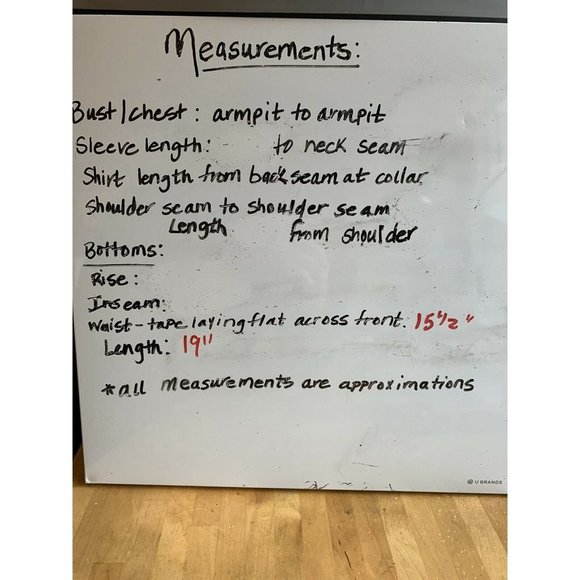 Measurements:
Bust/chest: armpit to armpit
Sleeve length: to neck seam
Shirt length from back seam at collar
Shoulder seam to shoulder seam
Length from shoulder
Bottoms:
Rise:
Inseam:
Waist-tape laying flat across front. 15 1/2"
Length: 19"
*all measurements are approximations
U BRANDS